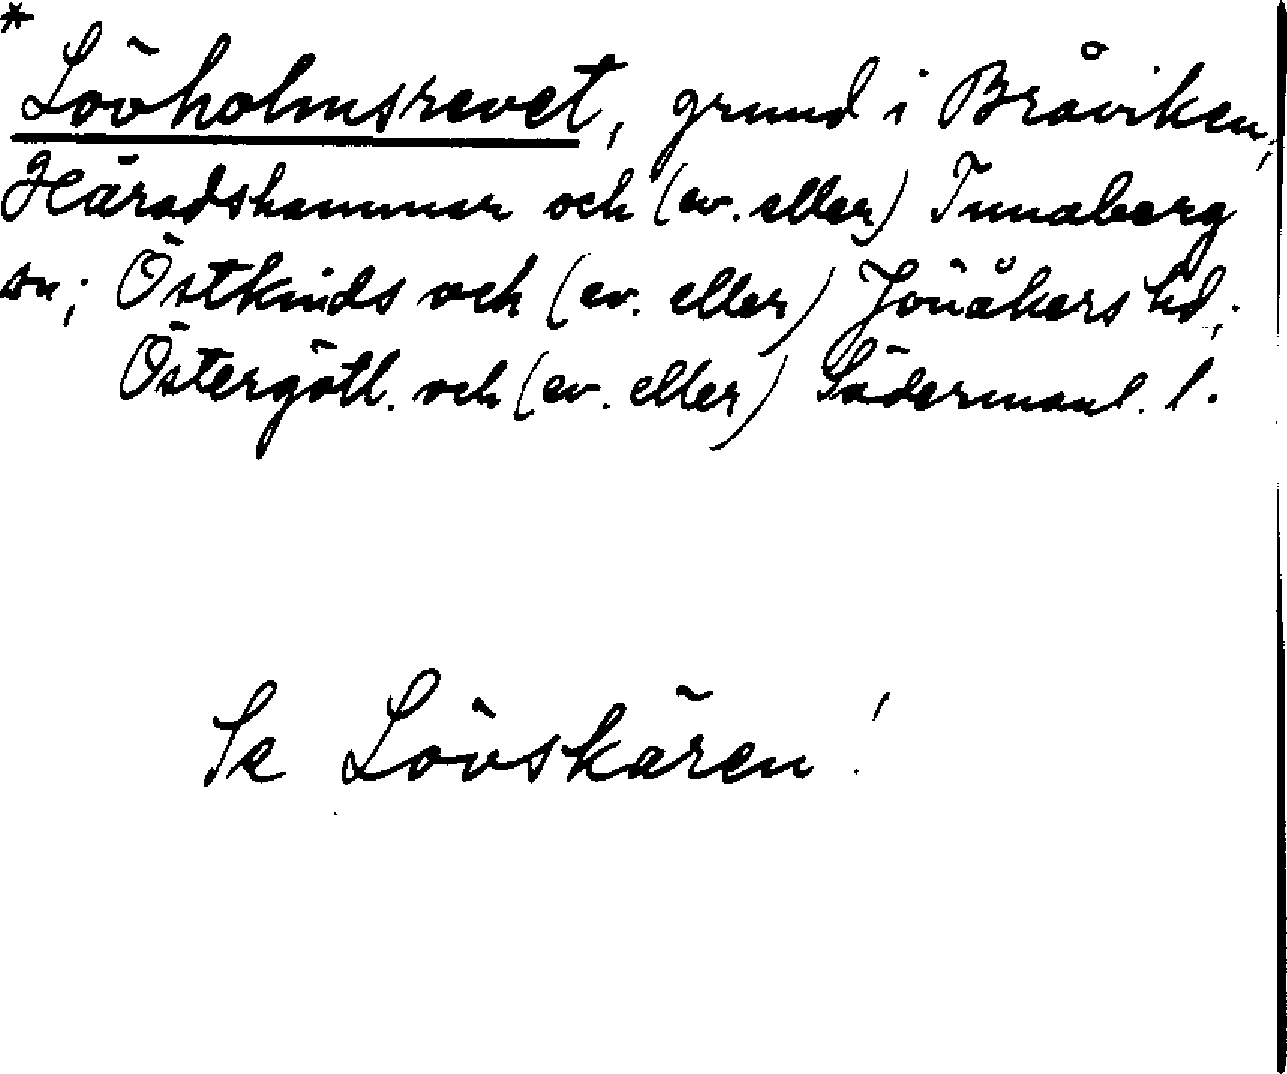 * Lövholmsrevet, grund i Bråviken,
Häradshammar och (ev. eller) Tunaberg
sn; Östkinds och (ev. eller) Jönåkers hd;
Östergötl. och (ev. eller) Södermanl. l.
Se Lövskären!